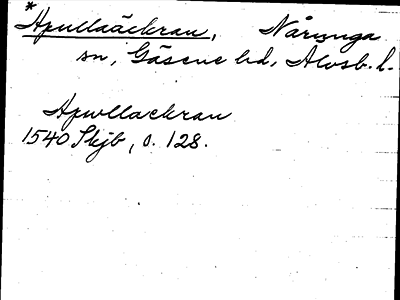 * Apullaäckran, Nårunga
sn, Gäsene hd, Älvsb. l.
Apwllackran
1540 Skjb, s. 128.